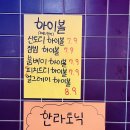 하이볼
산토리 하이볼 7.9
짐빔 하이볼 7.9
하이볼 7.9
하이볼 7.9
얼그레이 하이볼
8.9
한라토닉